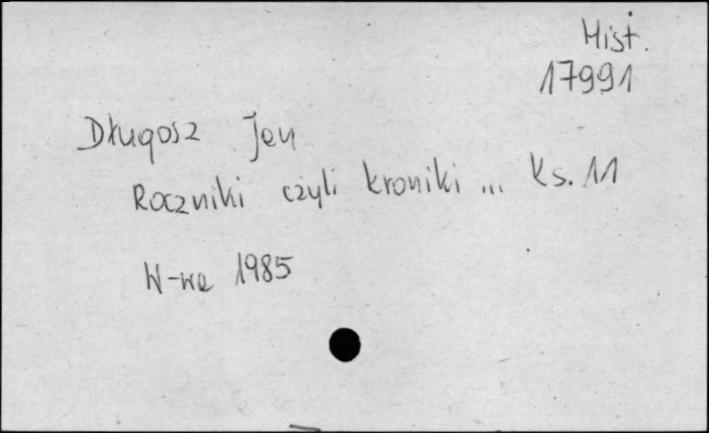 Hist.
17991
Długosz Jan
Roczniki czyli kroniki ... Ks. 11
W-wa 1985